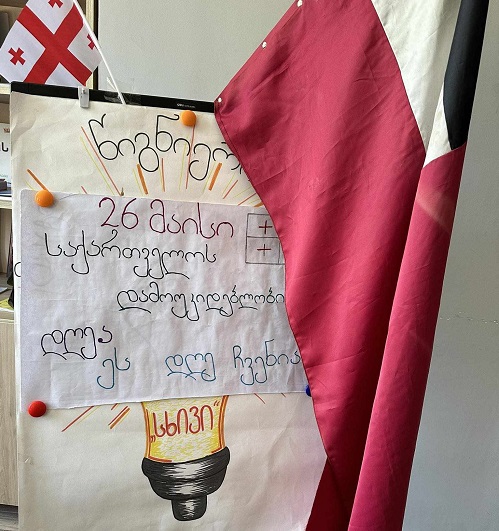 წიგნიერ
26 მაისი
საქართველოს
დამოუკიდებლობი
დღეა
ეს დღე ჩვენია
„სხივი“